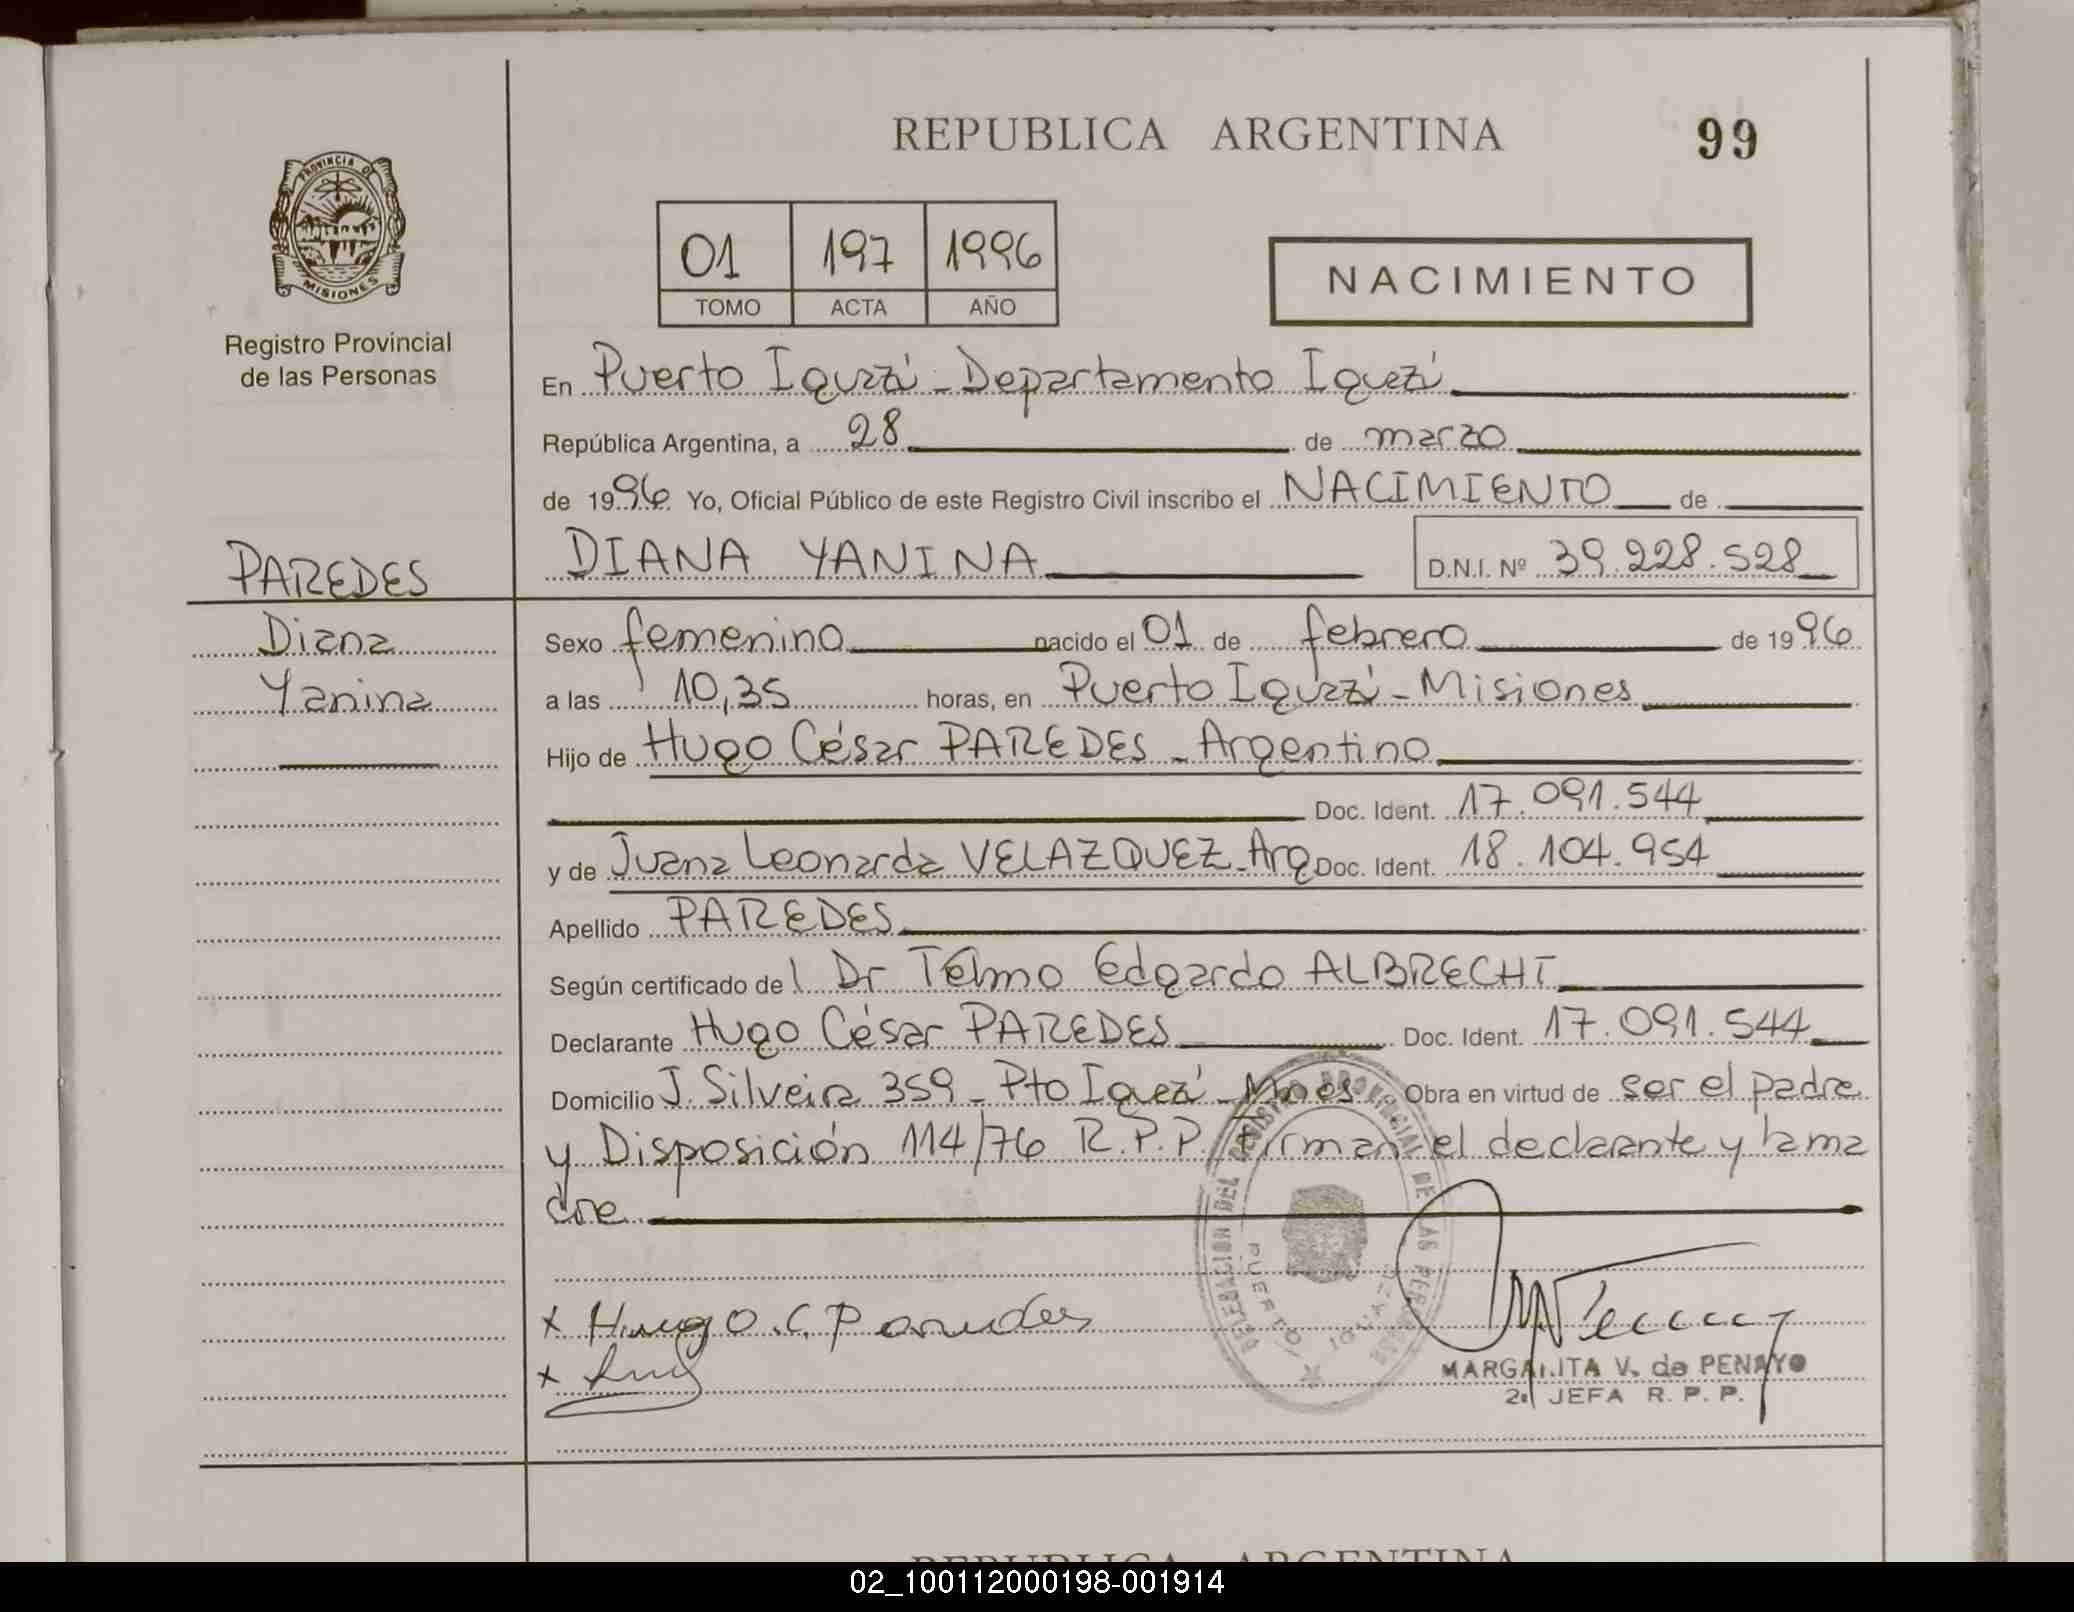 REPUBLICA ARGENTINA
99
PROVINCIA DE
MISIONES
Registro Provincial
de las Personas
01 197 1996
TOMO ACTA AÑO
NACIMIENTO
En Puerto Iguazú - Departamento Iguazú
República Argentina, a 28 de marzo
de 1996 Yo, Oficial Público de este Registro Civil inscribo el NACIMIENTO de
DIANA YANINA D.N.I. Nº 39.228.528
PAREDES
Diana
Yanina
Sexo femenino nacido el 01 de febrero de 1996
a las 10,35 horas, en Puerto Iguazú - Misiones
Hijo de Hugo César PAREDES - Argentino
Doc. Ident. 17.091.544
y de Juana Leonarda VELAZQUEZ - Arg Doc. Ident. 18.104.954
Apellido PAREDES
Según certificado del Dr Telmo Edgardo ALBRECHT
Declarante Hugo César PAREDES Doc. Ident. 17.091.544
Domicilio J. Silveira 359 - Pto Iguazú - Mnes. Obra en virtud de ser el padre
y Disposición 114/76 R.P.P. Firman el declarante y la ma
dre
DELEGACION DEL REGISTRO PROVINCIAL DE LAS PERSONAS
PUERTO IGUAZU
x Hugo.C.Paredes
x
MARGARITA V. de PENAYO
2ª JEFA R.P.P.
REPUBLICA ARGENTINA
02_100112000198-001914